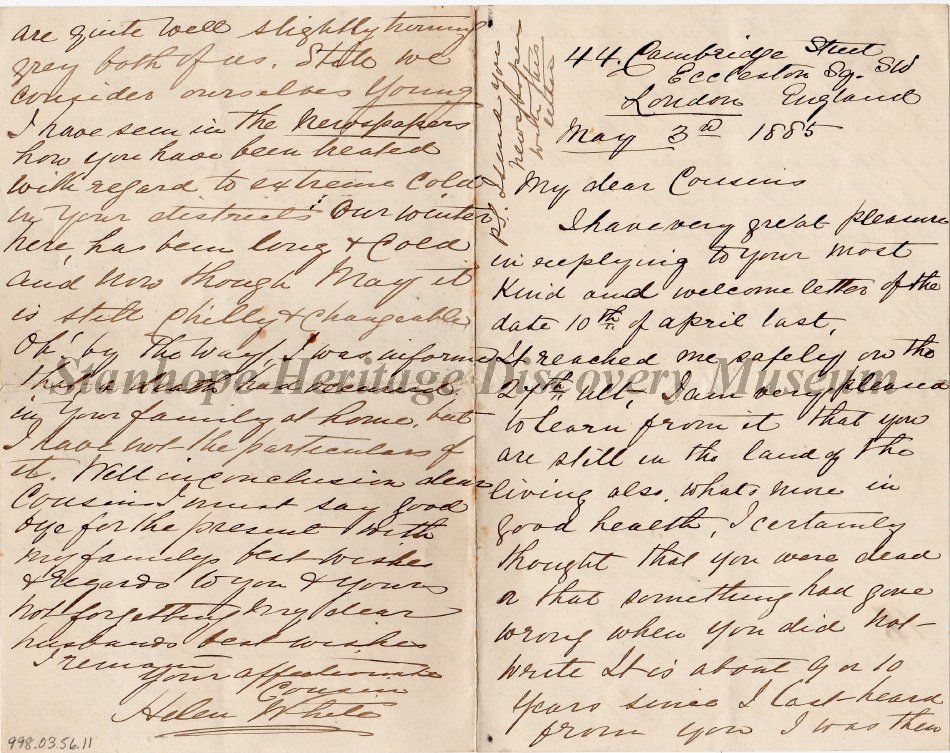 44. Cambridge Street
Eccleston Sq. SW
London England
May 3rd 1885
My dear Cousins
I have very great pleasure
in replying to your most
kind and welcome letter of the
date 10th of april last,
It reached me safely on the
27th ult, I am very pleased
to learn from it that you
are still in the land of the
living also, whats more in
good health, I certainly
thought that you were dead
or that something had gone
wrong when you did not
write It is about 9 or 10
years since I last heard
from you I was then
are quite well slightly turning
grey both of us. Still we
consider ourselves young
I have seen in the Newspapers
how you have been treated
with regard to extreme cold
in your districts Our winter
here, has been long & cold
and now though May it
is still chilly & changeable
Oh, by the way, I was informed
that a death had occurred
in your family at home, but
I have not the particulars of
it. Well in conclusion dear
Cousins I must say good
bye for the present with
my familys best wishes
& regards to you & yours
not forgetting my dear
husbands best wishes
I remain
Your affectionate
Cousin
Helen White
P.S. I send you
newspaper
with this
letter
998.03.56.11
Stanhope Heritage Discovery Museum